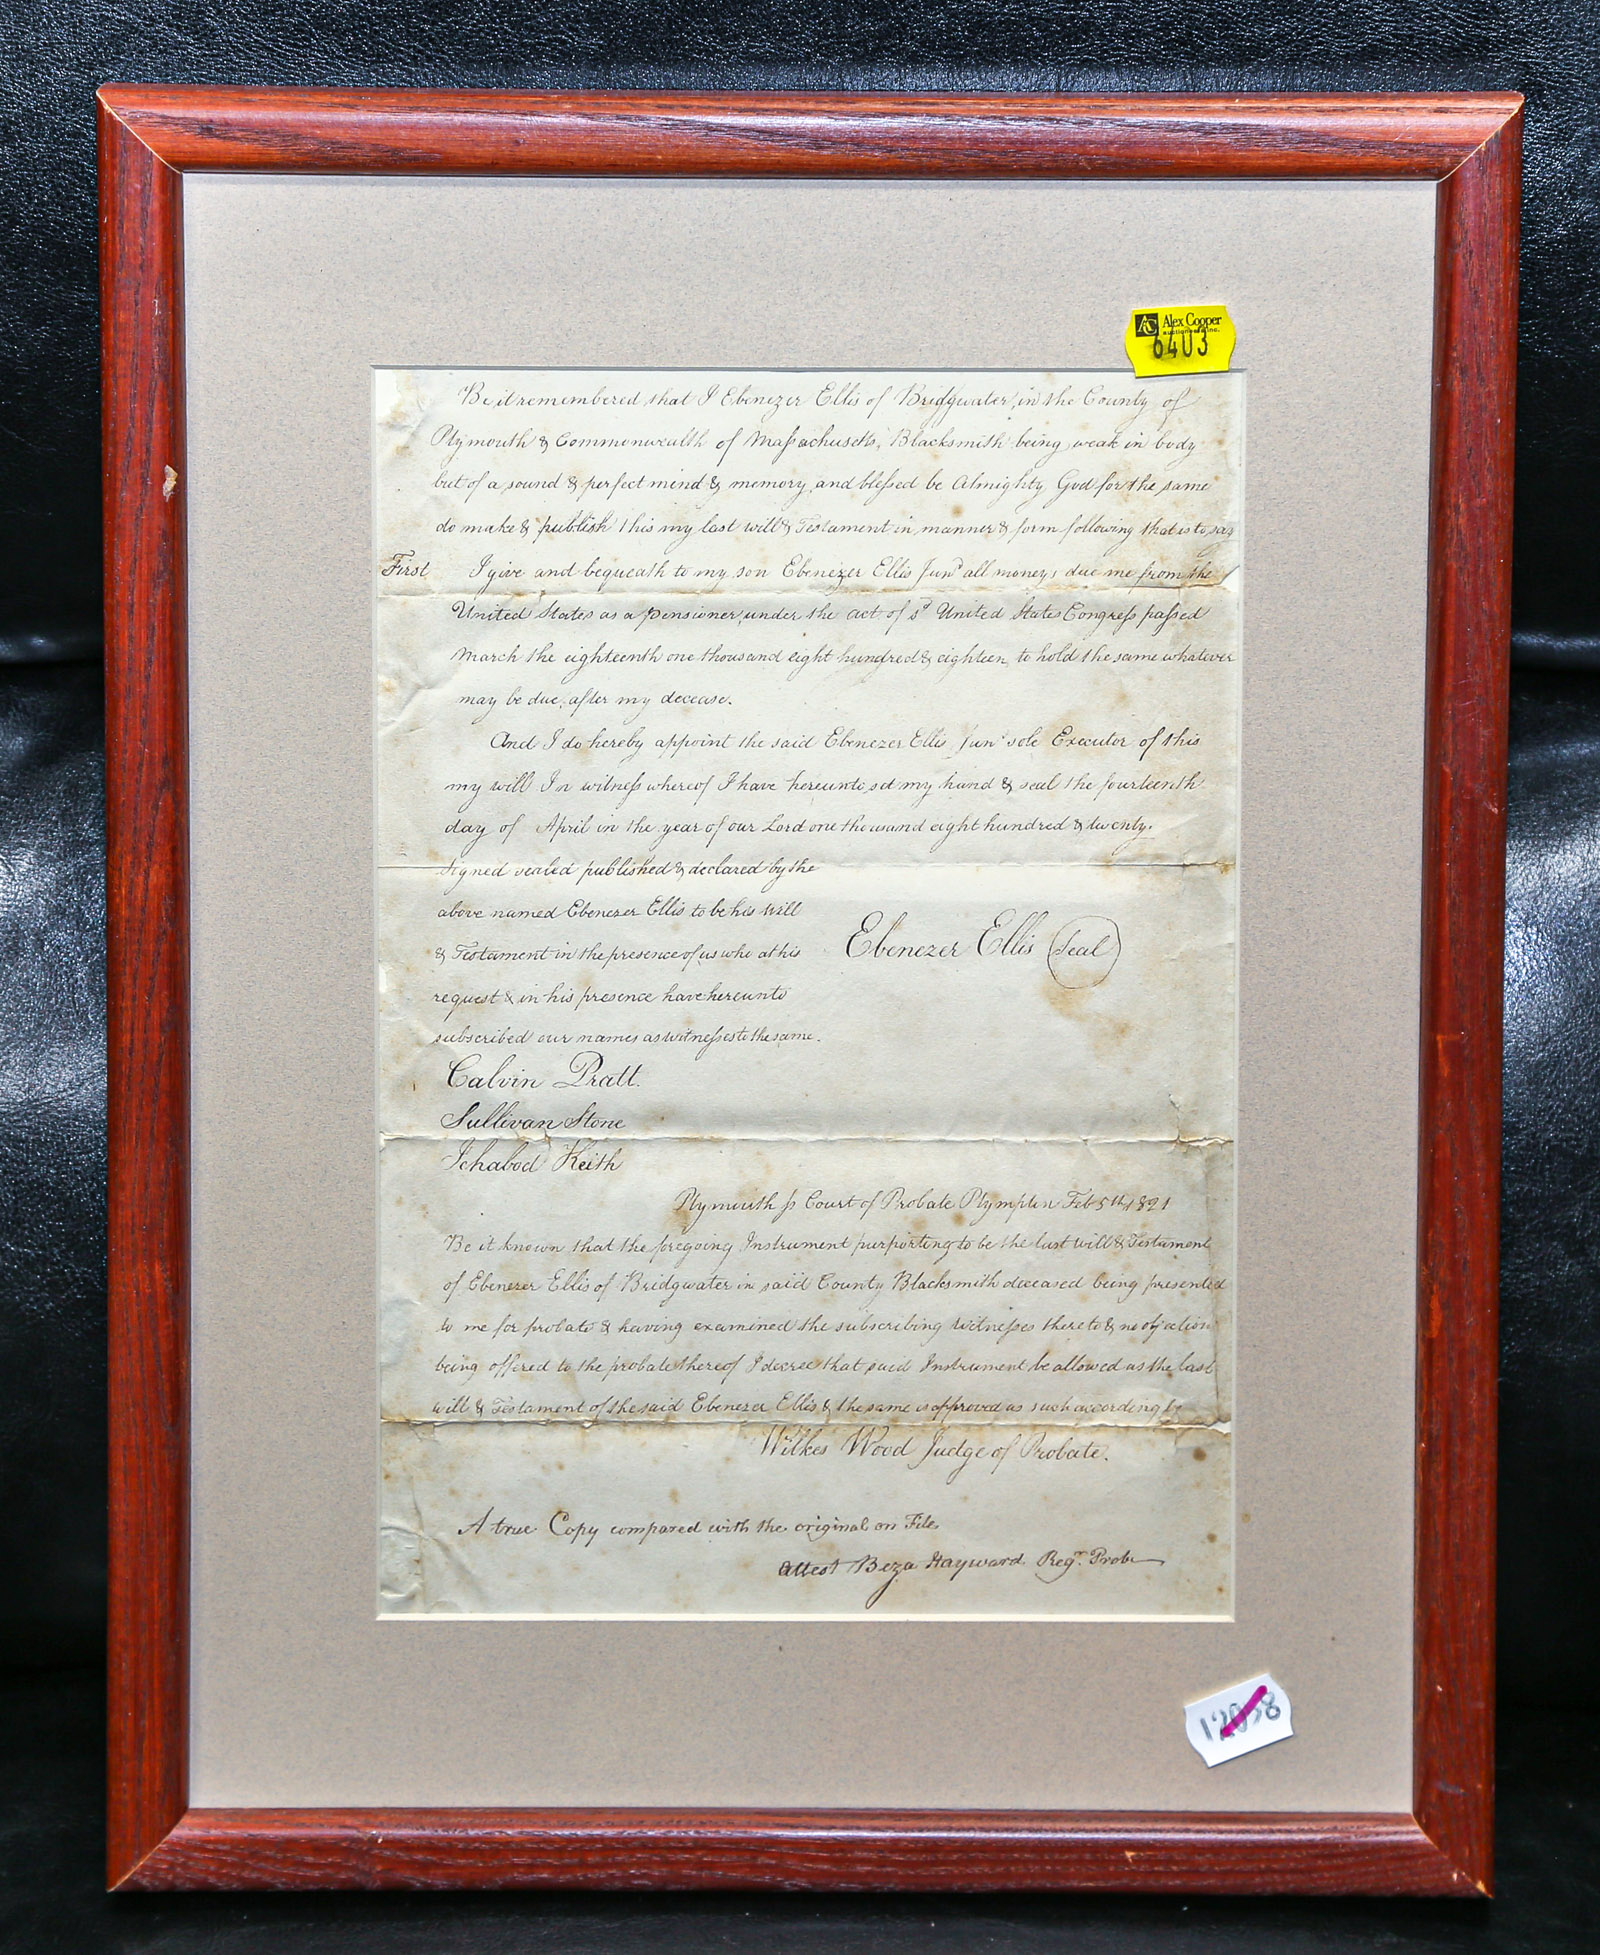 Alex Cooper
auctioneers inc.
6403
Be it remembered that I Ebenezer Ellis of Bridgwater, in the County of
Plymouth & Commonwealth of Maſsachusetts, Blacksmith being weak in body
but of a sound & perfect mind & memory, and bleſsed be Almighty God for the same
do make & publish this my last will & Testament in manner & form following that is to say
First I give and bequeath to my son Ebenezer Ellis Junr all moneys due me from the
United States as a pensioner, under the act of sd United States Congreſs paſsed
March the eighteenth one thousand eight hundred & eighteen, to hold the same whatever
may be due, after my decease.
And I do hereby appoint the said Ebenezer Ellis Junr sole Executor of this
my will In witneſs whereof I have hereunto set my hand & seal the fourteenth
day of April in the year of our Lord one thousand eight hundred & twenty.
Signed sealed published & declared by the
above named Ebenezer Ellis to be his Will
& Testament in the presence of us who at his
request & in his presence have hereunto
subscribed our names as witneſses to the same.
Ebenezer Ellis (Seal)
Calvin Pratt.
Sullivan Stone
Ichabod Keith
Plymouth ſs Court of Probate Plympton Feb 5th 1821
Be it known that the foregoing Instrument purporting to be the last will & Testament
of Ebenezer Ellis of Bridgwater in said County Blacksmith deceased being presented
to me for probate & having examined the subscribing witneſses thereto & no objection
being offered to the probate thereof I decree that said Instrument be allowed as the last
will & Testament of the said Ebenezer Ellis & the same is approved as such accordingly
Wilkes Wood Judge of Probate.
A true Copy compared with the original on File
Attest Beza Hayward Regr. Prob